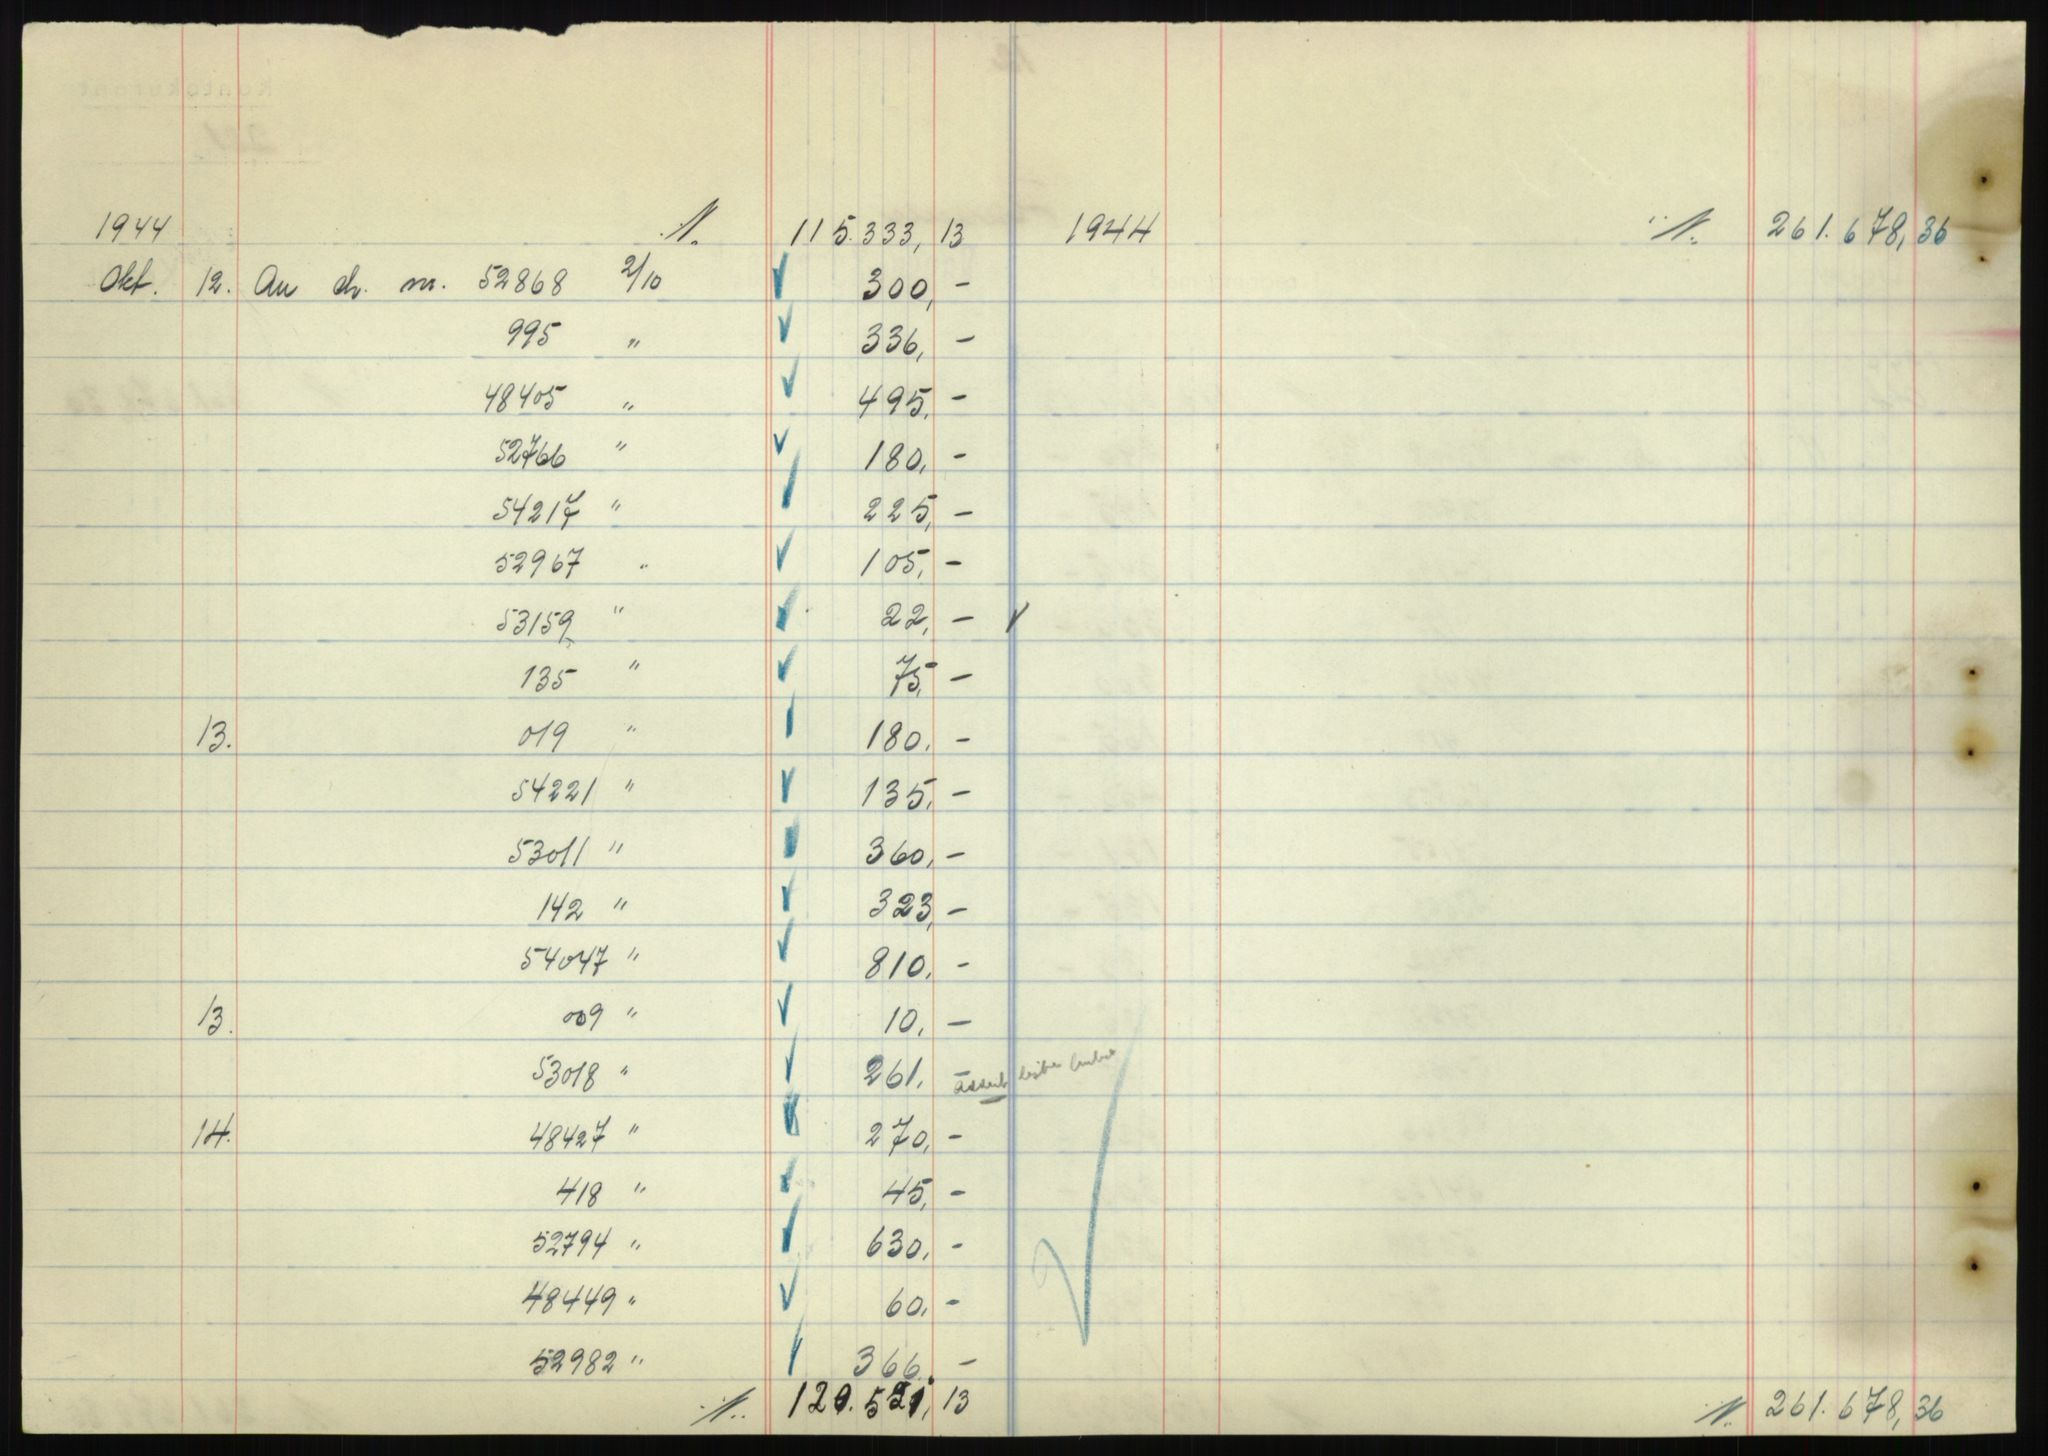 1944 ./. 115.333,13 1944 ./. 261.678,36
Okt. 12. An ch. nr. 52868 2/10 300,-
995 " 336,-
48405 " 495,-
52766 " 180,-
54217 " 225,-
52967 " 105,-
53159 " 22,-
135 " 75,-
13. 019 " 180,-
54221 " 135,-
53011 " 360,-
142 " 323,-
54047 " 810,-
13. 009 " 10,-
53018 " 261,-
14. 48427 " 270,-
418 " 45,-
52794 " 630,-
48449 " 60,-
52982 " 366,-
./. 120.521,13 ./. 261.678,36